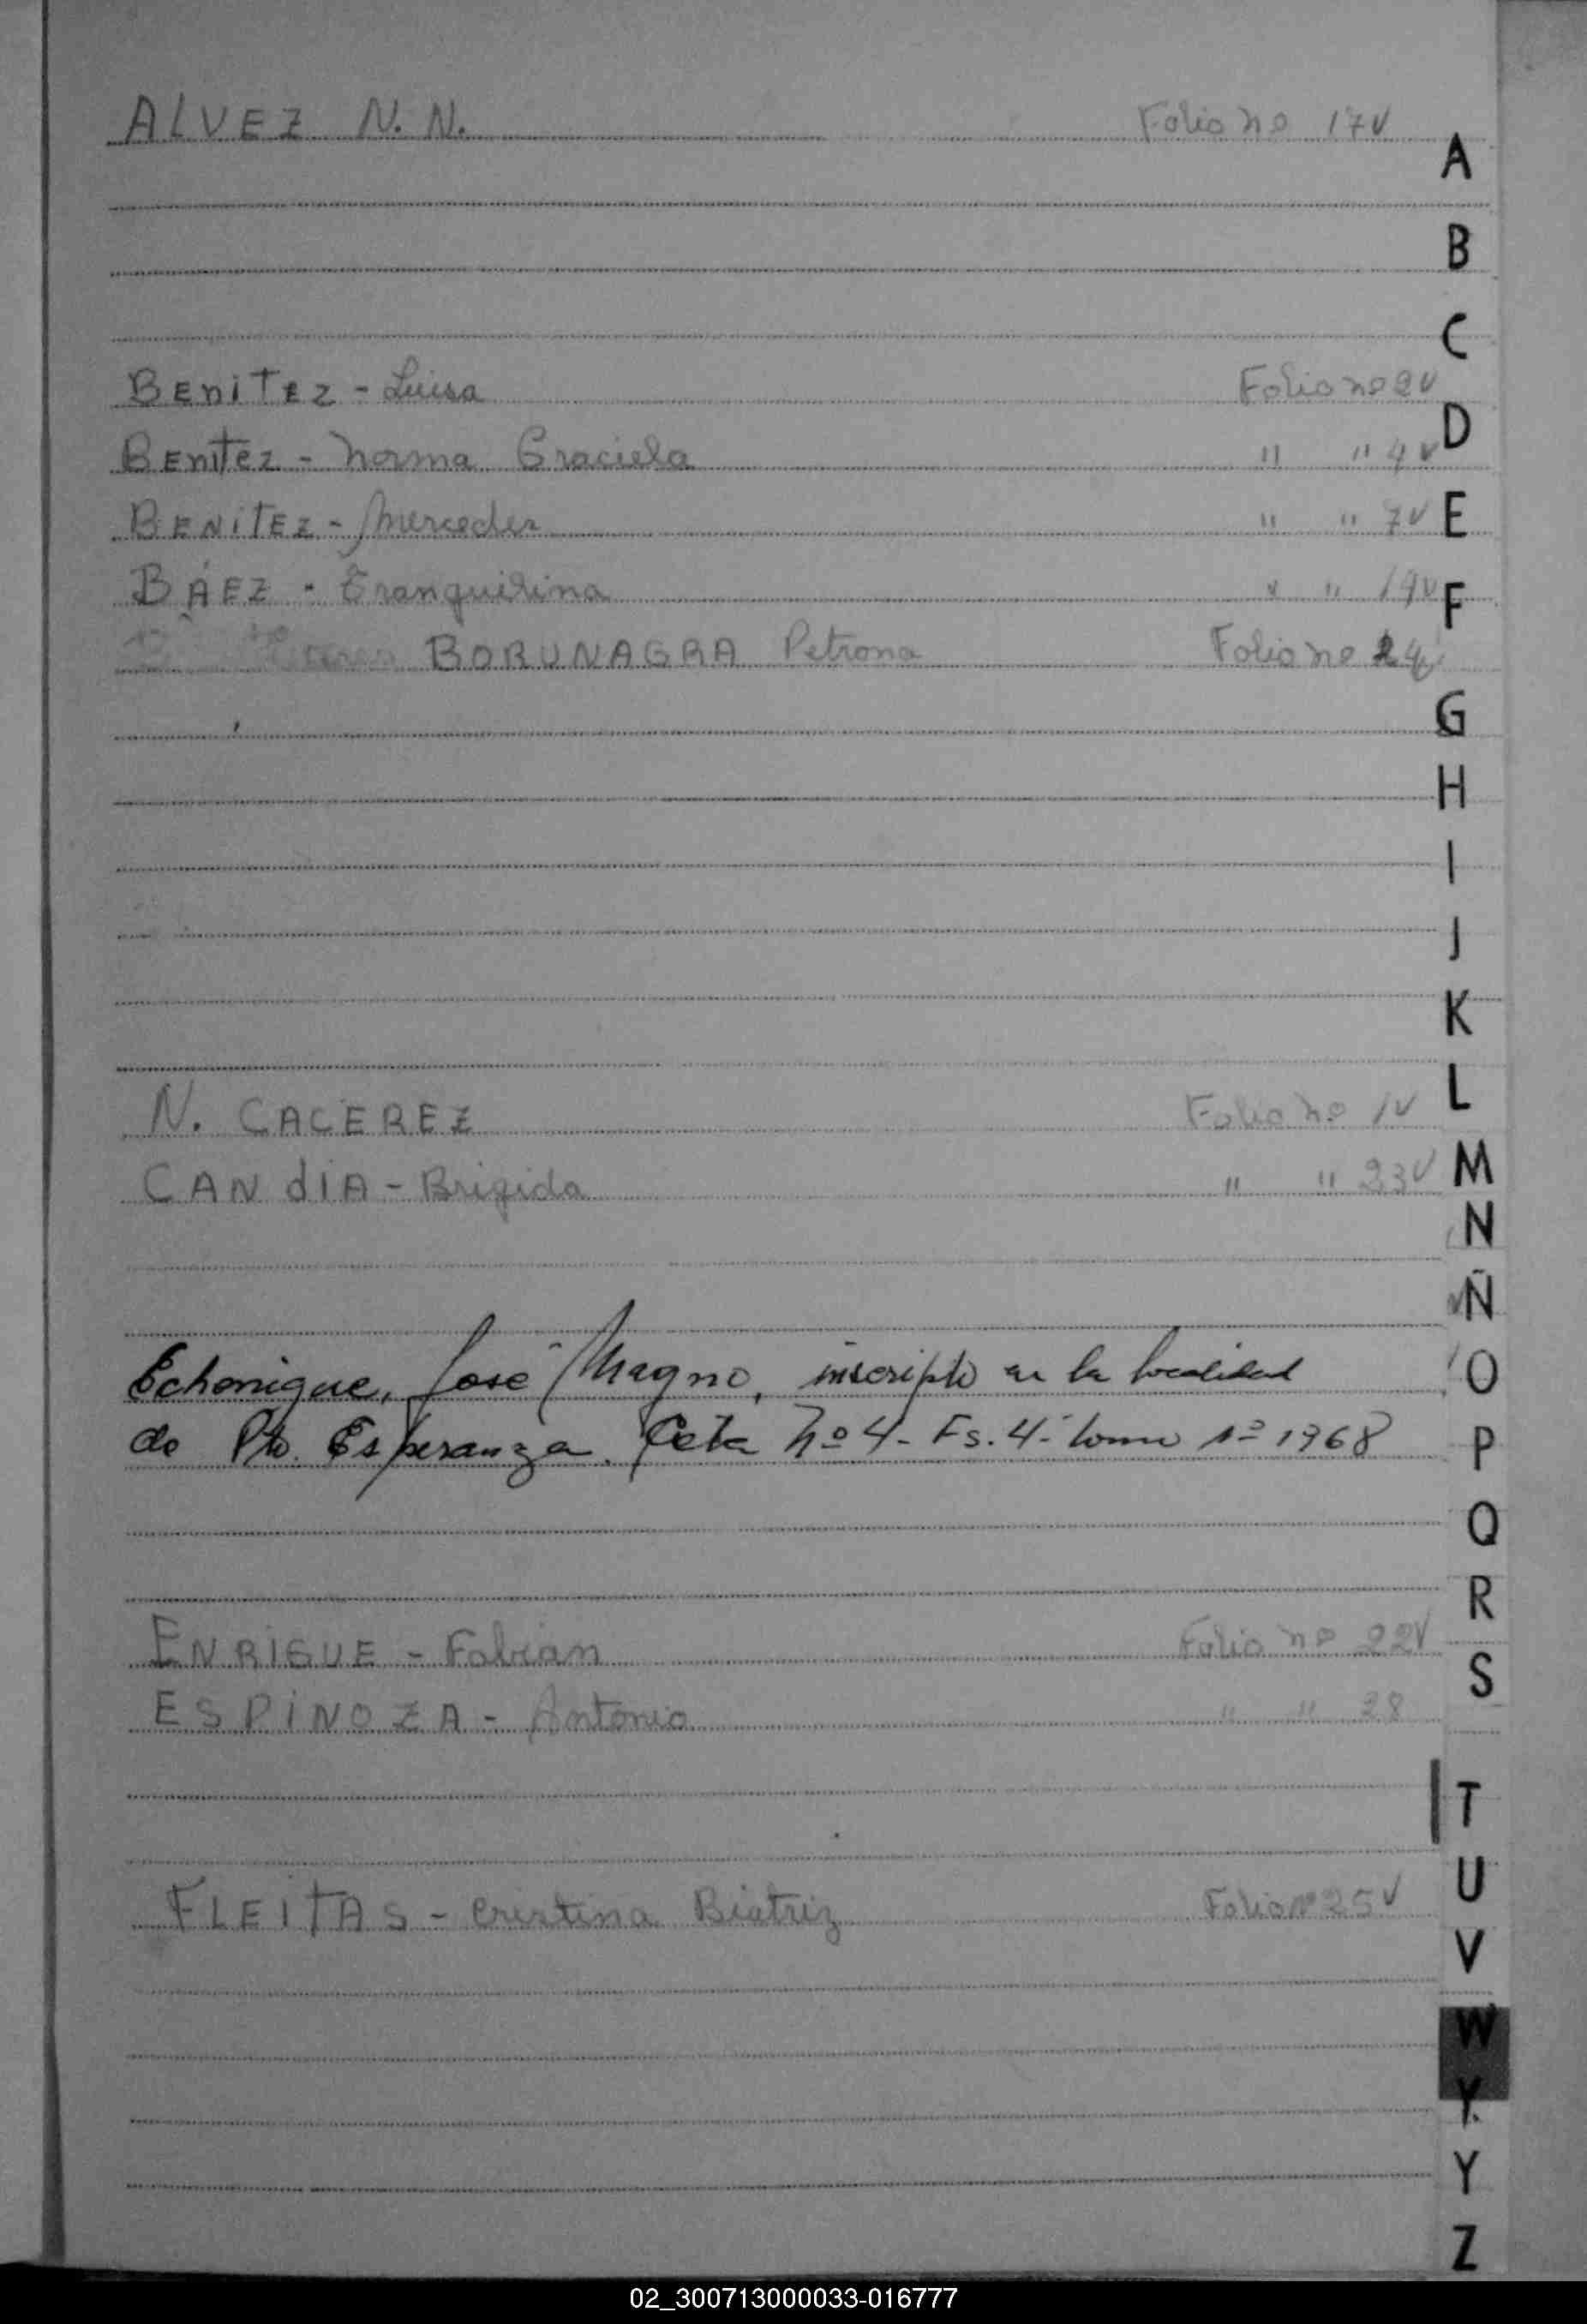 ALVEZ N. N. Folio no 17V
BENiTEZ - Luisa Folio no 2V
BENiTEZ - Norma Graciela " " 4V
BENiTEZ - Mercedes " " 7V
BÁEZ - Tranquilina " " 19V
BORUNAGRA Petrona Folio no
N. CACEREZ Folio no 1V
CANdiA - Brigida " " 23V
Echenique, José Magno, inscripto en la localidad
de Pto. Esperanza. Acta Nº 4 - Fs. 4 - tomo 1º 1968
ENRIGUE - Fabian Folio no 22V
ESPiNOZA - Antonio " " 28
FLEITAS - Cristina Biatriz Folio Nº 25V
A
B
C
D
E
F
G
H
I
J
K
L
M
N
Ñ
O
P
Q
R
S
T
U
V
W
Y
Y
Z
02_300713000033-016777